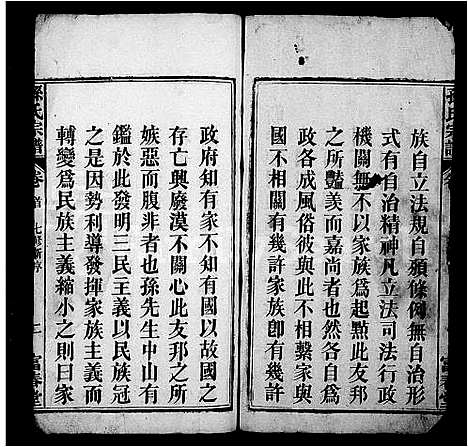 族自立法規自頒條例無自治形
式有自治精神凡立法司法行政
機關無不以家族爲起點此友邦
之所豔美而嘉尚者也然各自爲
政各成風俗彼與此不相繫家與
國不相關有幾許家族卽有幾許
政府知有家不知有國以故國之
存亡興廢漠不關心此友邦之所
嫉惡而腹非者也孫先生中山有
鑑於此發明三民主義以民族冠
之是因勢利導發揮家族主義而
轉變爲民族主義縮小之則曰家
孫氏宗譜
卷首
七修新序
富春堂